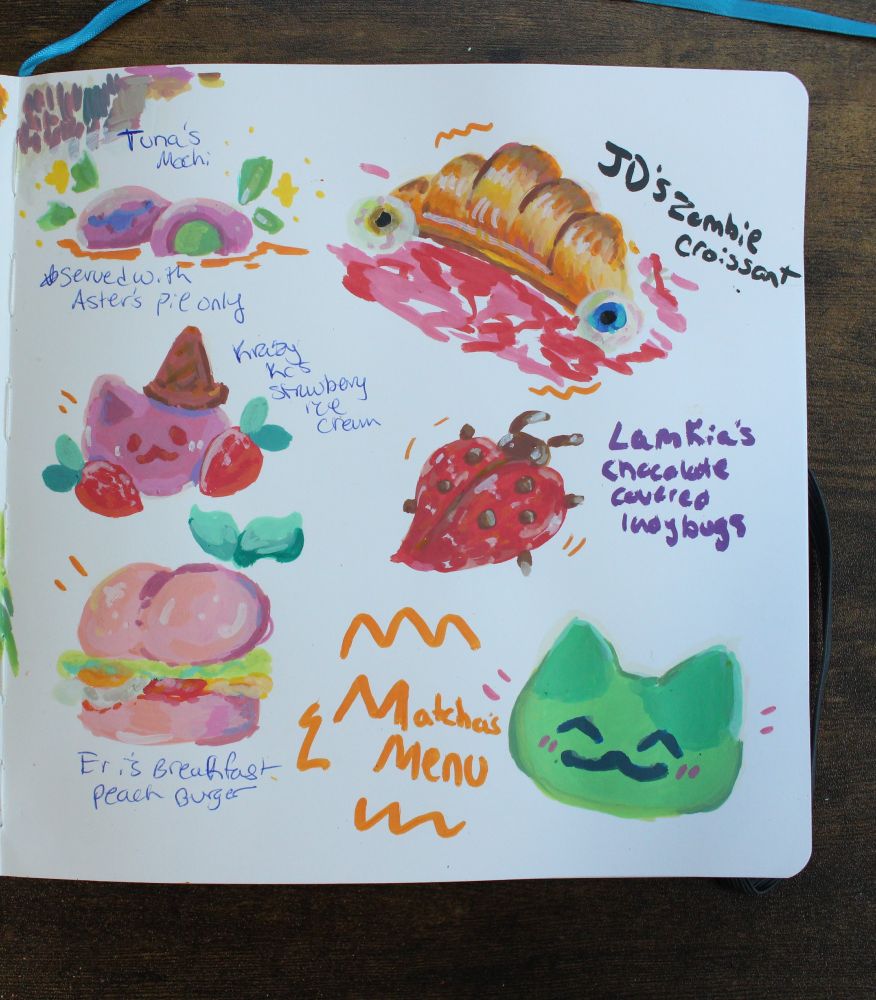 Tuna's
Mochi
*served with
Aster's pie only
JD's Zombie
croissant
Krazy
Kat
strawbery
ice
cream
LamKia's
chocolate
covered
ladybugs
Eri's Breakfast
peach Burger
Matcha's
Menu